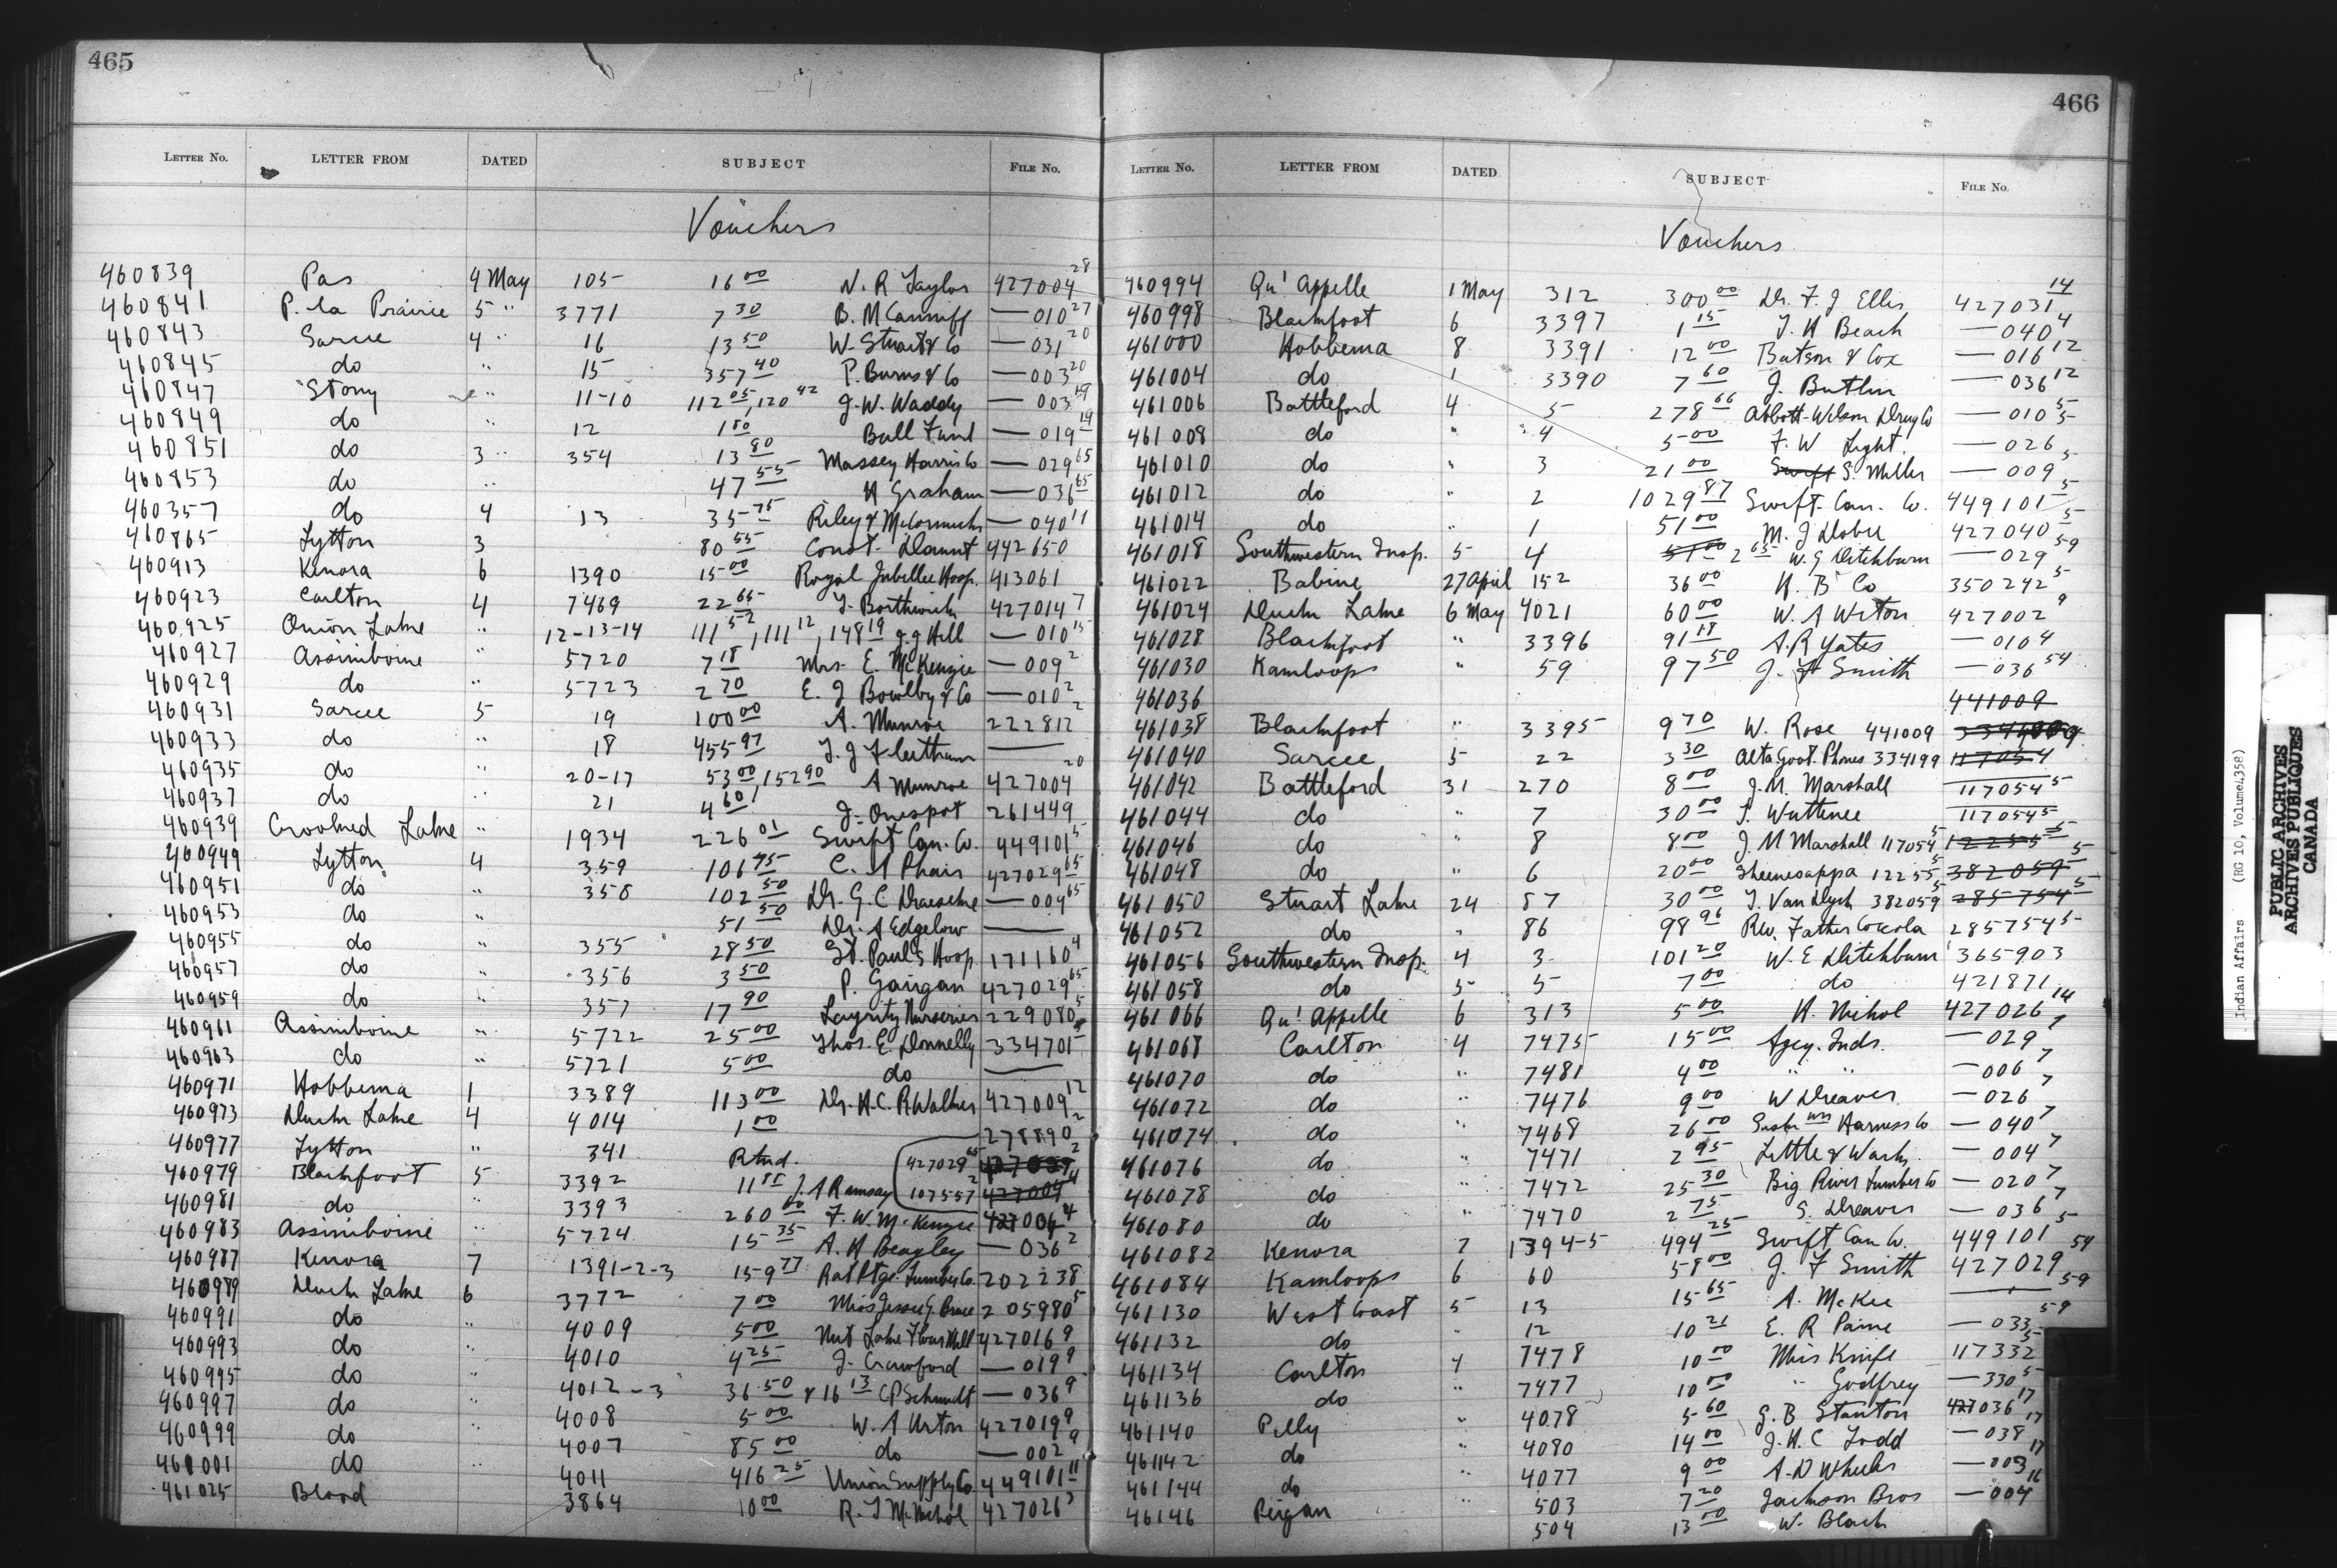 465
LETTER NO. LETTER FROM DATED SUBJECT FILE NO.
Vouchers
460839 Pas 4 May 105 16 00 N. R Taylor 427004 28
460841 P. la Prairie 5 " 3771 7 30 B. M Canniff — 010 27
460843 Sarcee 4 " 16 13 50 W. Stuart & Co — 031 20
460845 do " 15 357 40 P. Burns & Co — 003 20
460847 Stony " 11-10 112 05, 120 42 J. W. Waddy — 003 19
460849 do " 12 1 80 Ball Fund — 019 19
460851 do 3 " 354 13 80 Massey Harris Co — 029 65
460853 do " 47 55 H Graham — 036 65
460357 do 4 13 35 75 Riley & McCormick — 040 11
460865 Lytton 3 80 55 Const. Daunt 442650
460913 Kenora 6 1390 15 00 Royal Jubilee Hosp. 413061
460923 Carlton 4 7469 22 65 T. Borthwick 427014 7
460925 Onion Lake " 12-13-14 111 52, 111 12, 148 19 J. J Hill — 010 15
460927 Assiniboine " 5720 7 18 Mrs. E. McKenzie — 009 2
460929 do " 5723 2 70 E. J Bowlby & Co — 010 2
460931 Sarcee 5 19 100 00 A. Munroe 222812 2
460933 do " 18 455 97 T. J Fleetham —
460935 do " 20-17 53 00, 152 90 A Munroe 427004 20
460937 do " 21 4 60 J. Onespot 261449
460939 Crooked Lake " 1934 226 01 Swift Can. Co. 449101 5
460949 Lytton 4 359 106 75 C. A Phair 427029 65
460951 do " 358 102 50 Dr. G. C — 009 65
460953 do " 51 50 Dr. A Edgelow —
460955 do " 355 28 50 St. Pauls Hosp. 171160 4
460957 do " 356 3 50 P. Garigan 427029 65
460959 do " 357 17 90 Layritz Nurseries 229080 5
460961 Assiniboine " 5722 25 00 Thos. E. Donnelly 334701
460963 do " 5721 5 00 do —
460971 Hobbema 1 3389 113 00 Dr. H. C. R Walker 427009 12
460973 Duck Lake 4 4014 1 00 278890 2
460977 Lytton " 341 Rtnd. 427029 65
460979 Blackfoot 5 3392 11 85 J. A Ramsay 107557 2 427004 4
460981 do " 3393 260 00 F. W. McKenzie 427004 4
460983 Assiniboine " 5724 15 35 A. H Beagley — 036 2
460987 Kenora 7 1391-2-3 159 77 Rat Ptge. Lumber Co. 202238
460989 Duck Lake 6 3772 7 00 Miss Jessie G. Bruce 205980 5
460991 do " 4009 5 00 Nut Lake Flour Mill 427016 9
460993 do " 4010 4 25 J. Crawford — 019 9
460995 do " 4012-3 36 50 & 16 13 C P Schmidt — 036 9
460997 do " 4008 5 00 W. A Urton 427019 9
460999 do " 4007 85 00 do — 002 9
461001 do " 4011 416 25 Union Supply Co 449101 11
461025 Blood 3864 10 00 R. T McNichol 427026 3
466
LETTER NO. LETTER FROM DATED SUBJECT FILE NO.
Vouchers
460994 Qu' Appelle 1 May 312 300 00 Dr. F. J Ellis 427031 14
460998 Blackfoot 6 3397 1 15 T. H Beach — 040 4
461000 Hobbema 8 3391 12 00 Batson & Cox — 016 12
461004 do 1 3390 7 60 J. Butlin — 036 12
461006 Battleford 4 5 278 66 Abbott-Wilson Drug Co — 010 5
461008 do " 4 5 00 F. W Light — 026 5
461010 do " 3 21 00 Swift S. Miller — 009 5
461012 do " 2 1029 87 Swift Can. Co. 449101 5
461014 do " 1 51 00 M. J Dobie 427040 5
461018 Southwestern Insp. 5 4 51 00 2 65 W. G Ditchburn — 029 59
461022 Babine 27 April 152 36 00 H. B Co 350242 5
461024 Duck Lake 6 May 4021 60 00 W. A Urton 427002 9
461028 Blackfoot " 3396 91 18 A. R Yates — 010 4
461030 Kamloops " 59 97 50 J. F Smith — 036 54
461036 441009
461038 Blackfoot " 3395 9 70 W. Rose 441009
461040 Sarcee 5 22 3 30 Alta Govt. Phones 334199 117054
461042 Battleford 31 270 8 00 J. M. Marshall 117054 5
461044 do " 7 30 00 T. Wuttunee 117054 5
461046 do " 8 8 00 J. M Marshall 117054 5 12255 5
461048 do " 6 20 00 Sheenesappa 12255 5 382059 5
461050 Stuart Lake 24 87 30 00 T. Van Dyk 382059 5 285754 5
461052 do " 86 98 96 Rev. Father Coccola 285754 5
461056 Southwestern Insp. 4 3 101 20 W. E Ditchburn 365903
461058 do 5 5 7 00 do 421871
461066 Qu' Appelle 6 313 5 00 H. Nichol 427026 14
461068 Carlton 4 7475 15 00 Agcy. Inds. — 029 7
461070 do " 7481 4 00 " " — 006 7
461072 do " 7476 9 00 W Dreaver — 026 7
461074 do " 7468 26 00 Harness Co — 040 7
461076 do " 7471 2 95 Little & Wark — 004 7
461078 do " 7472 25 30 Big River Lumber Co — 020 7
461080 do " 7470 2 75 S. Dreaver — 036 7
461082 Kenora 7 1394-5 494 25 Swift Can Co. 449101 5
461084 Kamloops 6 60 58 00 J. F Smith 427029 54
461130 West Coast 5 13 15 65 A. McKee — 59
461132 do " 12 10 21 E. R Paine — 033 59
461134 Carlton 4 7478 10 00 Miss Knife 117332 5
461136 do " 7477 10 00 " Godfrey — 330 5
461140 Pelly " 4078 5 60 G. B Stanton 427036 17
461142 do " 4080 14 00 J. H. C Todd — 038 17
461144 do " 4077 9 00 A. D Wheeler — 003 17
46146 Peigan " 503 7 20 Jackson Bros — 004 16
504 13 00 W. Black
Indian Affairs (RG 10, Volume 4358)
PUBLIC ARCHIVES
ARCHIVES PUBLIQUES
CANADA